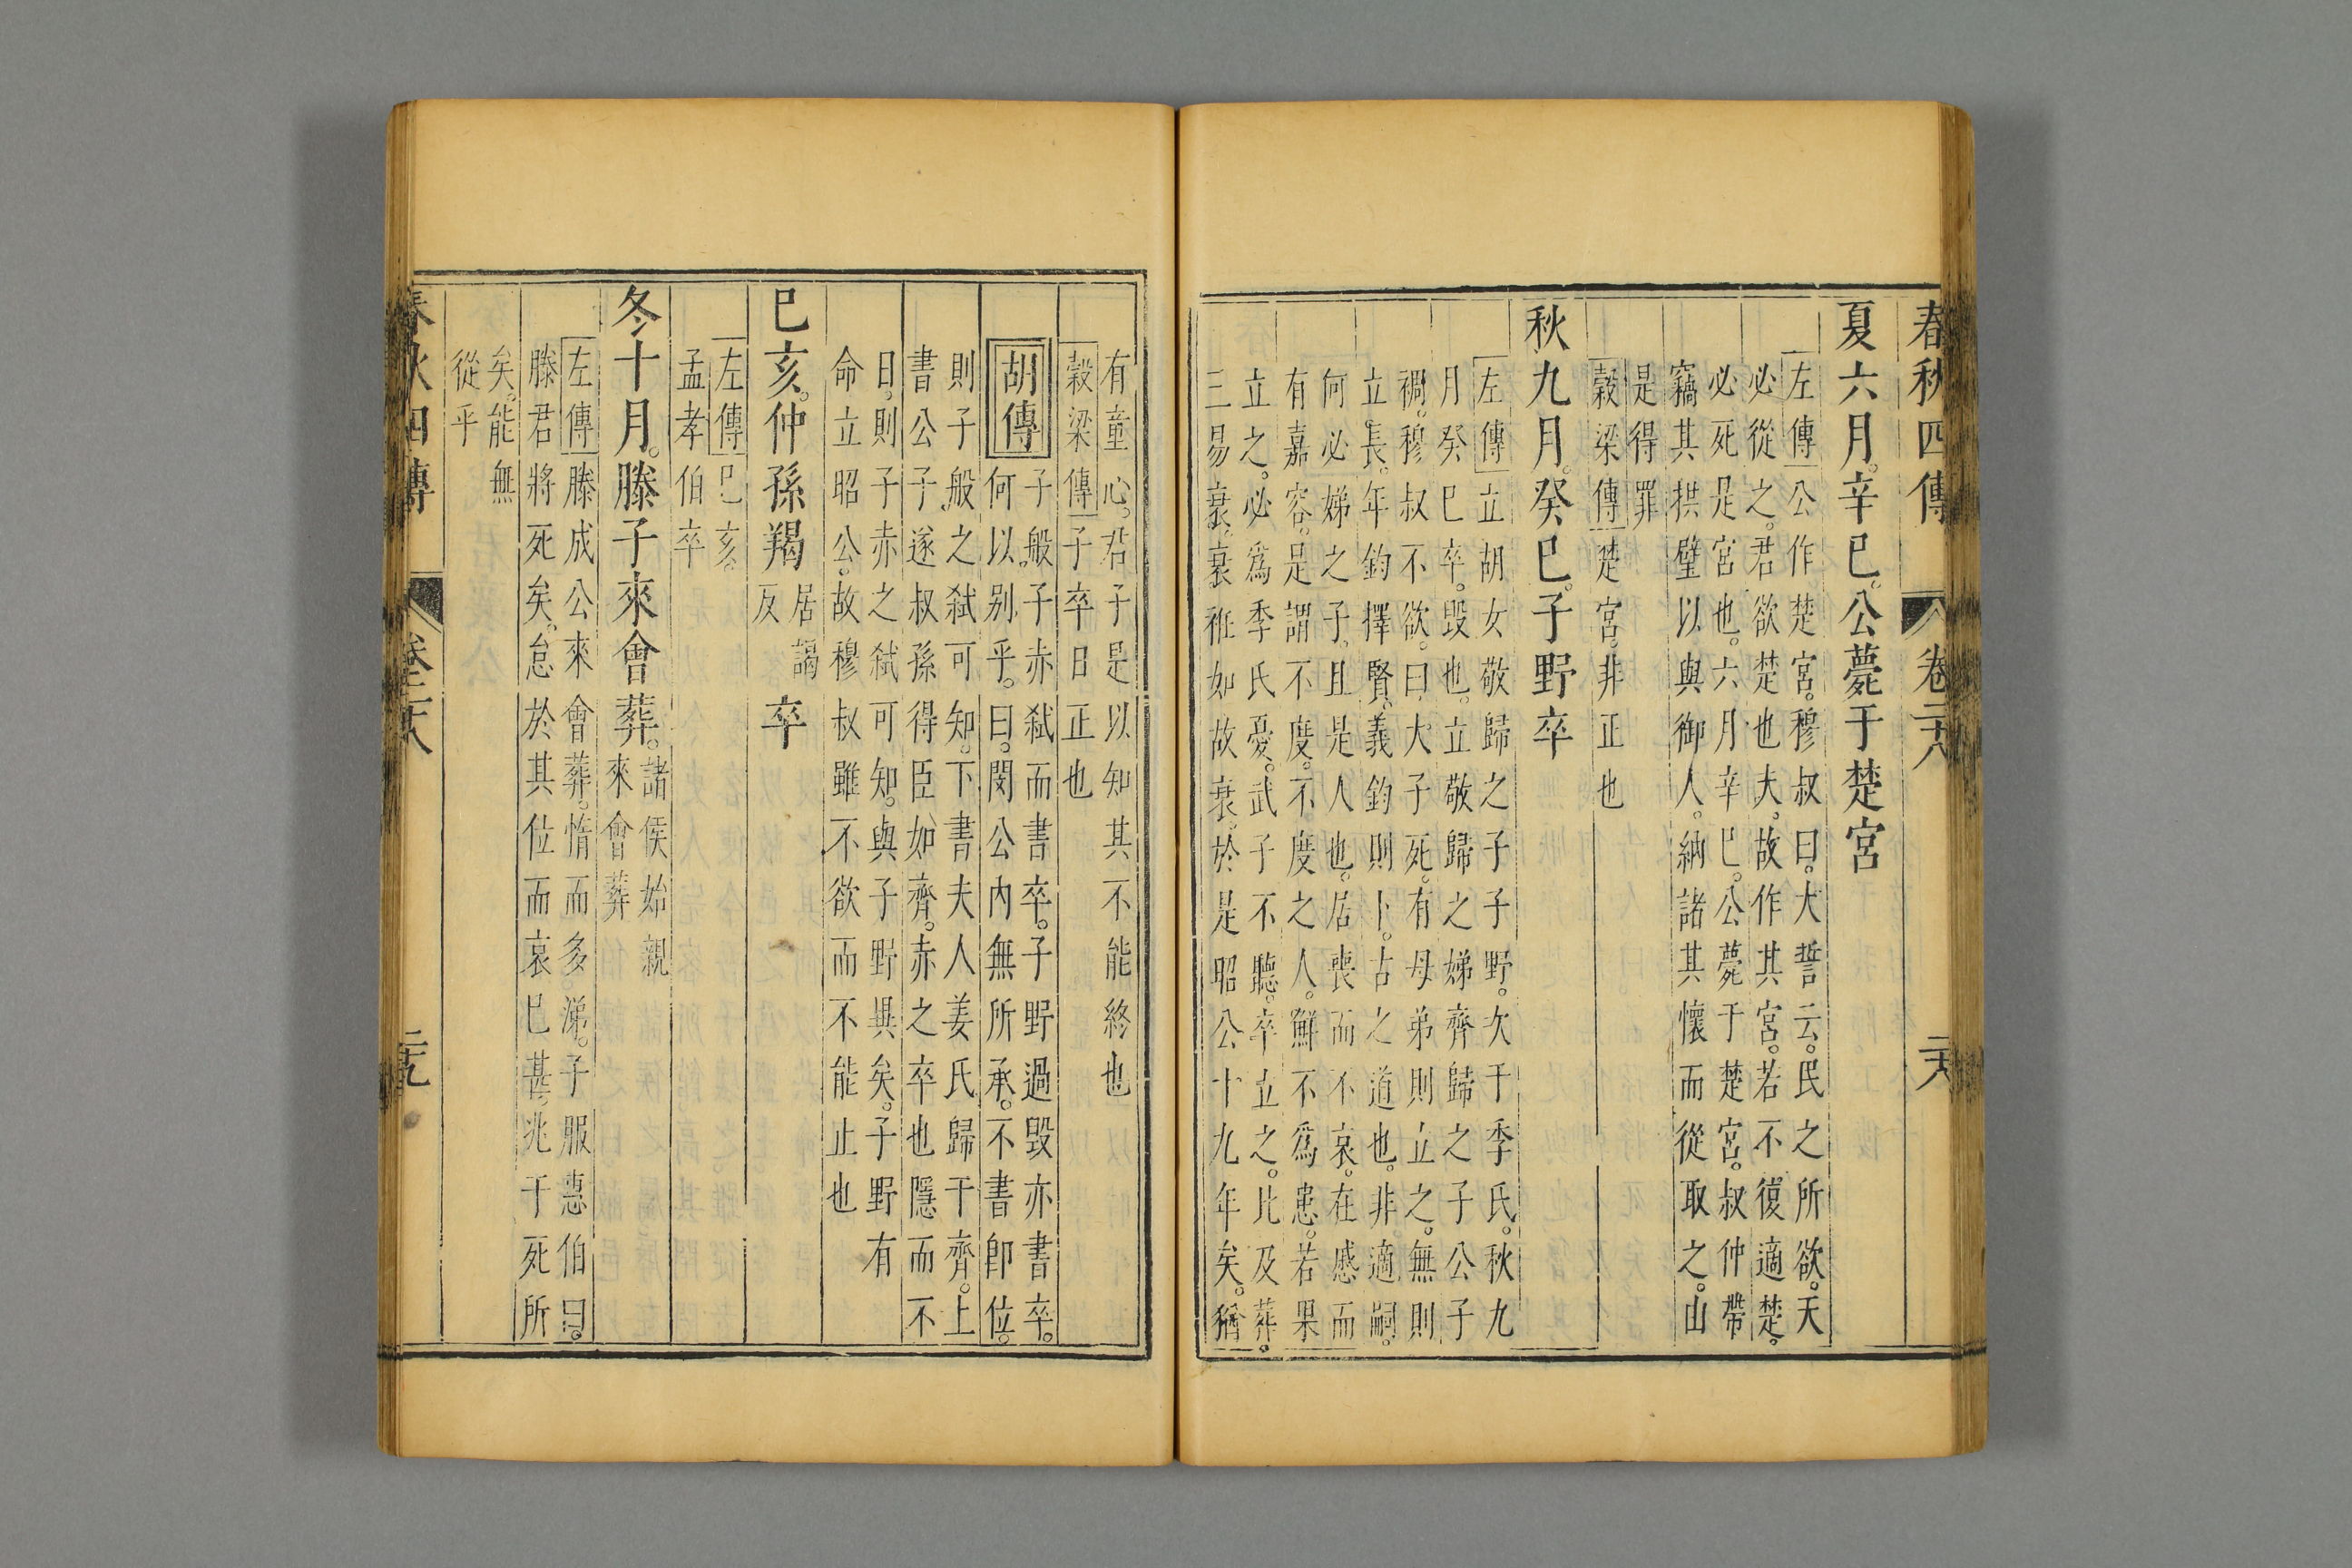 春秋四傳 卷二十八 二十八
夏六月。辛巳。公薨于楚宮
左傳公作楚宮。穆叔曰。大誓云。民之所欲。天
必從之。君欲楚也夫。故作其宮。若不復適楚。
必死是宮也。六月辛巳。公薨于楚宮。叔仲帶
竊其拱璧以與御人。納諸其懷而從取之。由
是得罪
穀梁傳楚宮。非正也
秋九月。癸巳。子野卒
左傳立胡女敬歸之子子野。次于季氏。秋九
月癸巳卒。毀也。立敬歸之娣齊歸之子公子
裯。穆叔不欲。曰。大子死。有母弟則立之。無則
立長。年鈞擇賢。義鈞則卜。古之道也。非適嗣。
何必娣之子。且是人也。居喪而不哀。在慼而
有嘉容。是謂不度。不度之人。鮮不爲患。若果
立之。必爲季氏憂。武子不聽。卒立之。比及葬。
三易衰。衰衽如故衰。於是昭公十九年矣。猶
有童心。君子是以知其不能終也
穀梁傳子卒日正也
胡傳子般。子赤弑而書卒。子野過毀亦書卒。
何以别乎。曰。閔公內無所承。不書卽位。
則子般之弑可知。下書夫人姜氏歸于齊。上
書公子遂叔孫得臣如齊。赤之卒也隱而不
日。則子赤之弑可知。與子野異矣。子野有
命立昭公。故穆叔雖不欲而不能止也
巳亥。仲孫羯居謁反卒
左傳巳亥。
孟孝伯卒
冬十月。滕子來會葬。諸侯始親來會葬
左傳滕成公來會葬。惰而多涕。子服惠伯曰。
滕君將死矣。怠於其位而哀巳甚。兆于死所
矣。能無
從乎
春秋四傳 卷二十八 二十九